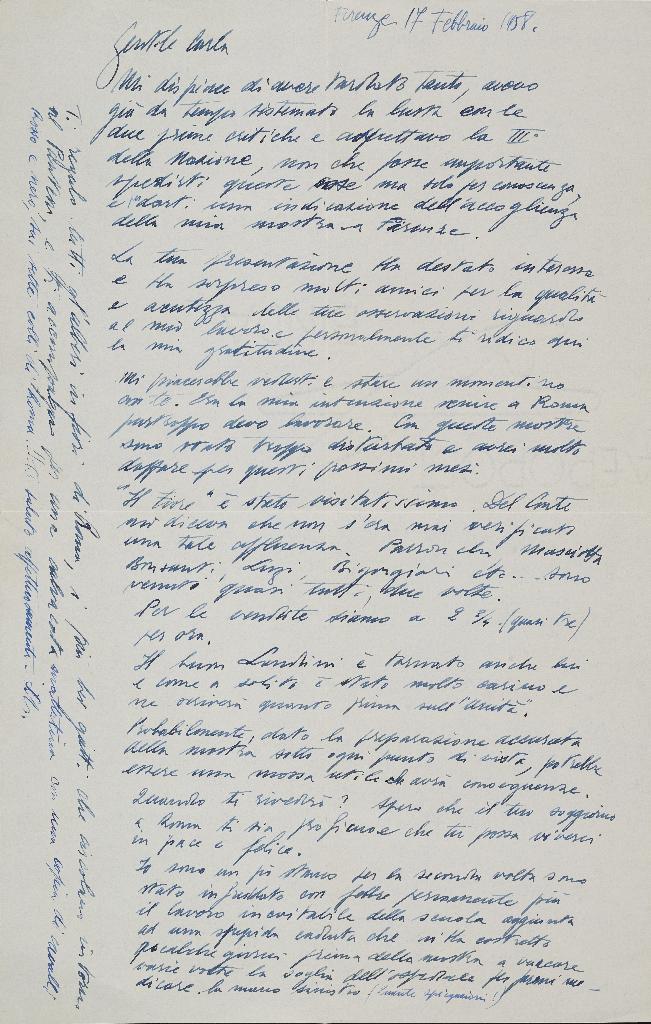 Firenze 17 Febbraio 1958.
Gentile Carla
Mi dispiace di avere tardato tanto, avevo
già da tempo sistemato la busta con le
due prime critiche e aspettavo la III°
della Nazione, non che fosse importante
spedirti queste cose ma solo per conoscenza,
e "darti una indicazione dell'accoglienza
della mia mostra a Firenze.
La tua presentazione ha destato interesse
e ha sorpreso molti amici per la qualità
e acutezza delle tue osservazioni riguardo
al mio lavoro e personalmente ti ridico qui
la mia gratitudine.
Mi piacerebbe vederti e stare un momentino
con te. Era la mia intenzione venire a Roma
purtroppo devo lavorare. Con queste mostre
sono stato troppo disturbato e avrei molto
daffare per questi prossimi mesi.
"Il fiore" è stato visitatissimo. Del Conte
mi diceva che non s'era mai verificato
una tale affluenza. Parronchi, Masciotta
Bonsanti, Luzi, Bigongiari etc... sono
venuti quasi tutti, due volte.
Per le vendite siamo a 2 3/4 (quasi tre)
per ora.
Il buon Landini è tornato anche lui
e come a solito è stato molto carino e
ne scriverà quanto prima sull'"Unità".
Probabilmente, dato la preparazione accurata
della mostra sotto ogni punto di vista, potrebbe
essere una mossa utile che avrà conseguenze.
Quando ti rivedrò? Spero che il tuo soggiorno
a Roma ti sia proficuo e che tu possa viverci
in pace e felice.
Io sono un pò stanco per la seconda volta sono
stato infreddato con febbre permanente più
il lavoro inevitabile della scuola aggiunta
ad una stupida caduta che mi ha costretto
qualche giorni prima della mostra a varcare
varie volte la soglia dell'ospedale per farmi me-
dicare la mano sinistra
Ti regalo tutti gl'alberi in fiori di Roma, i più bei gatti che circolano intorno
al Pantheon, e ti accompagno una
rosso e nero, sui sette colli di Roma... Ti saluto affettuosamente.